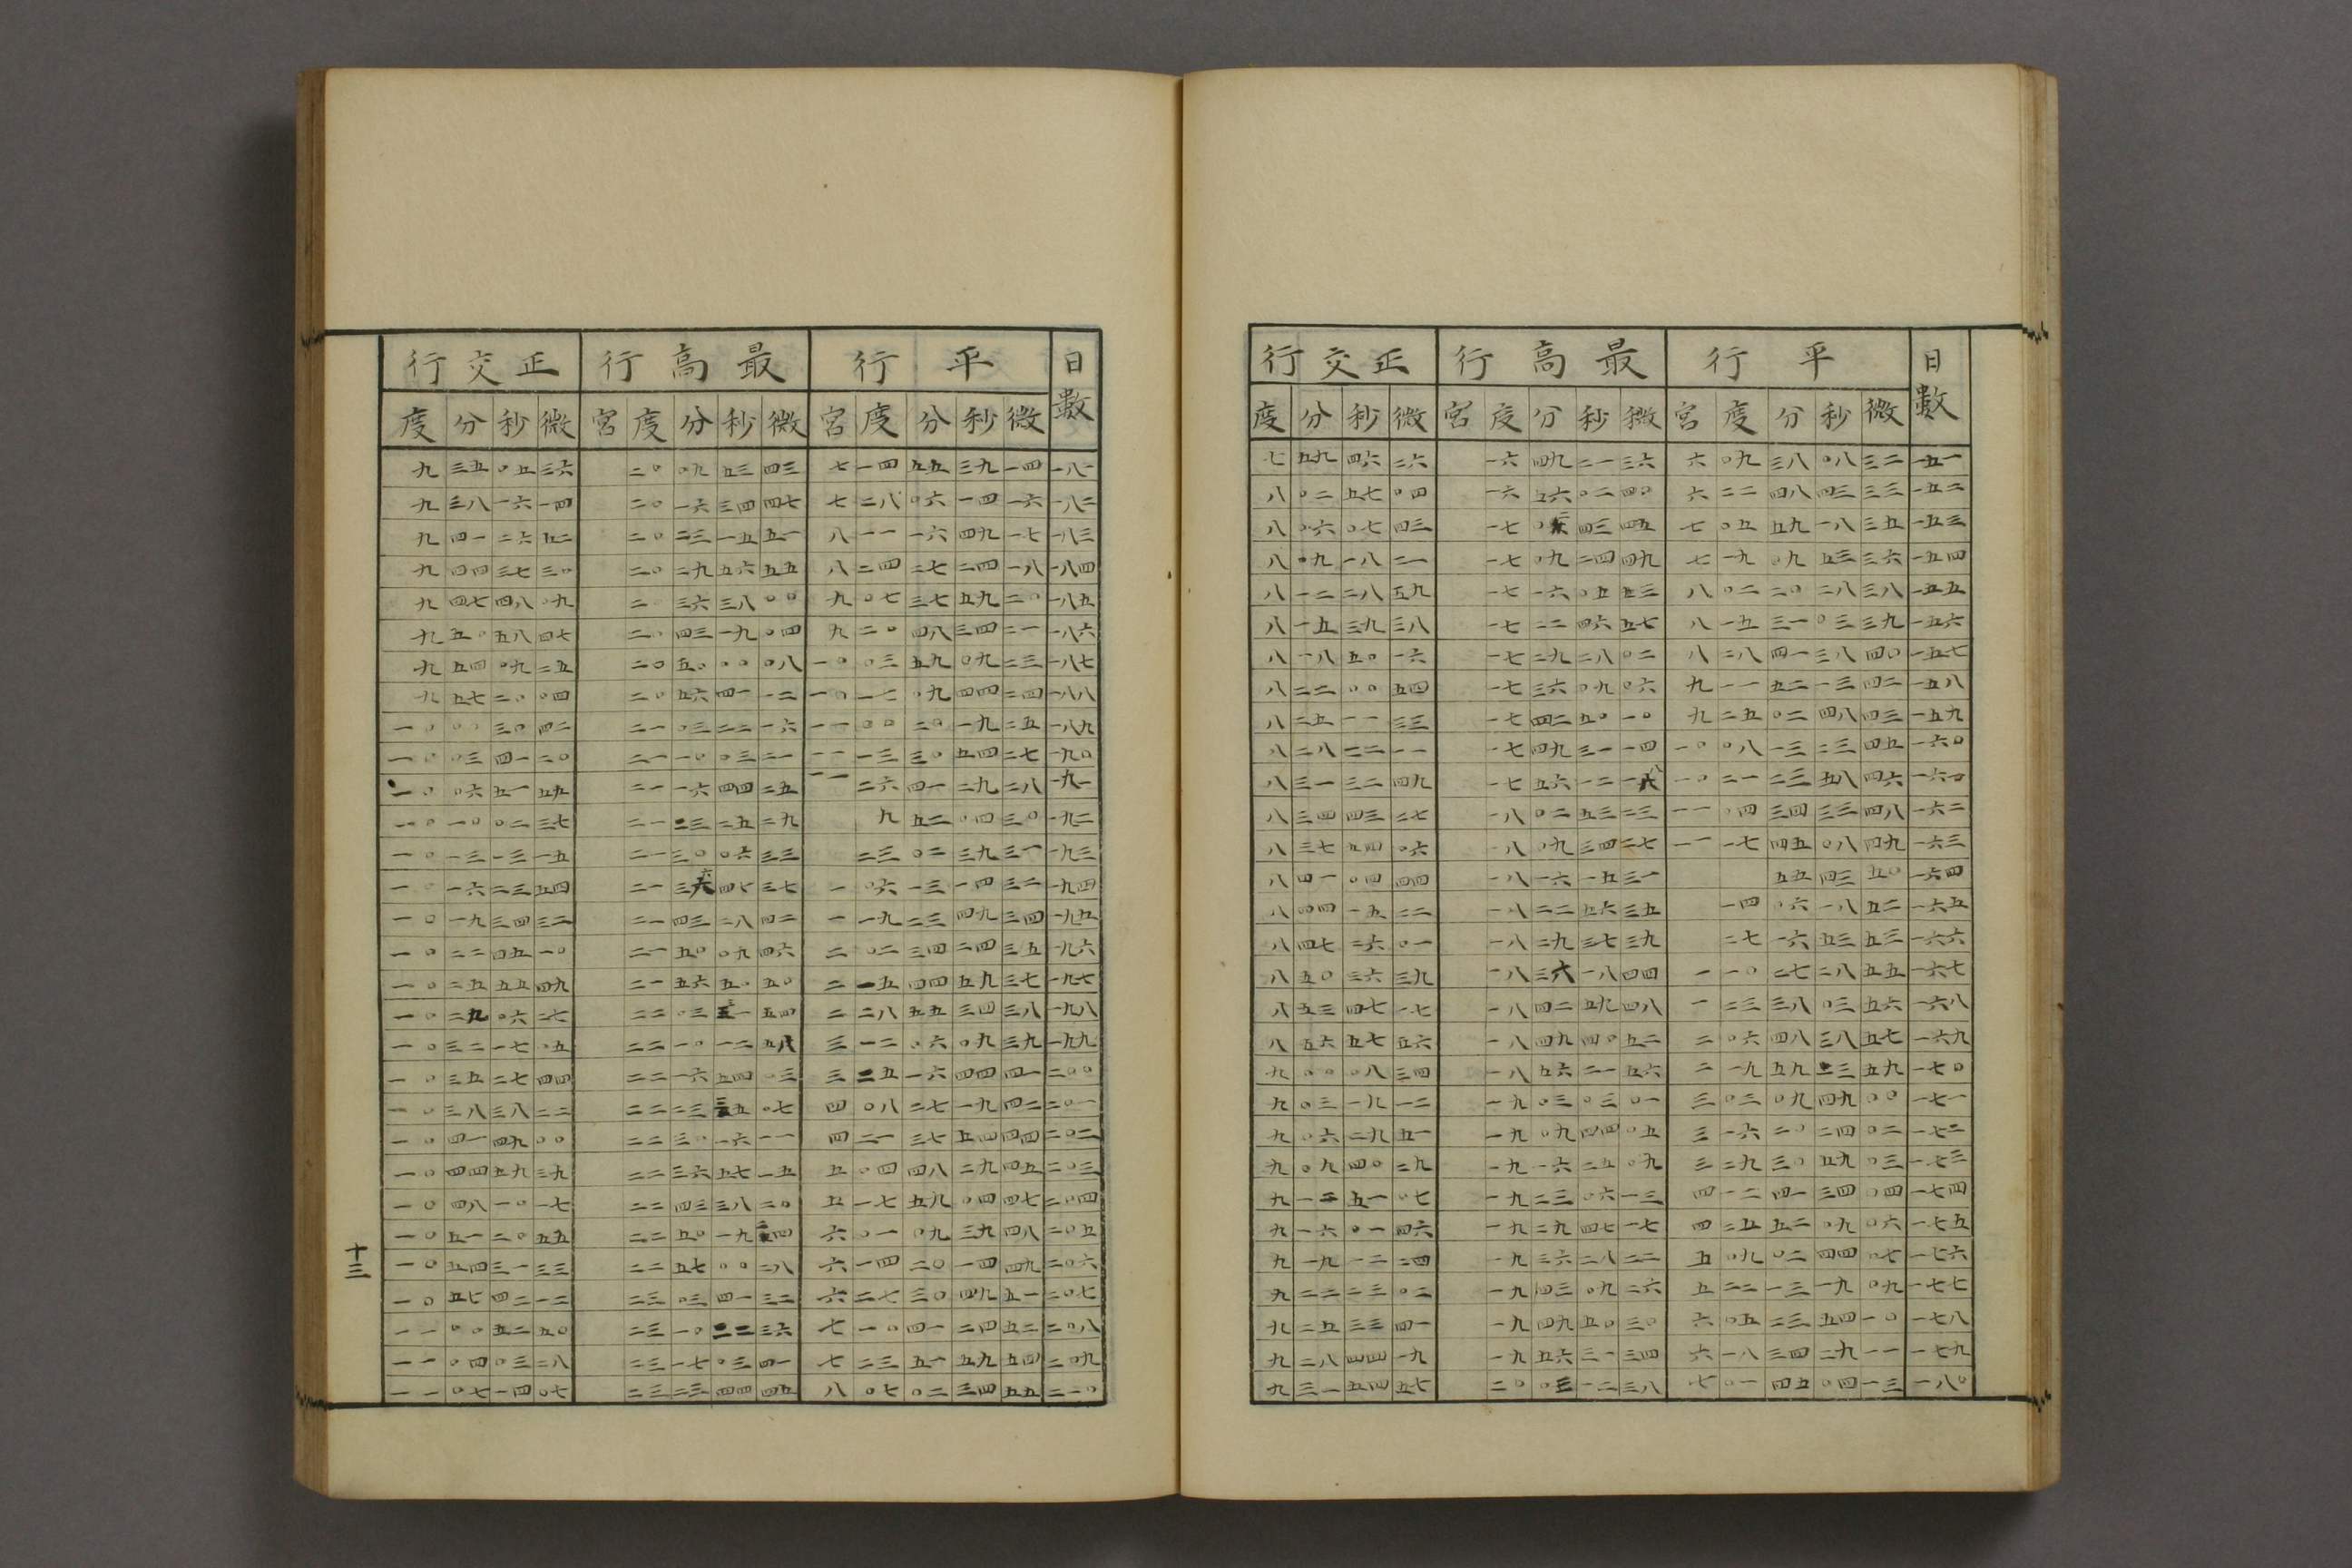 日數 平行 最高行 正交行
宮 度 分 秒 微 宮 度 分 秒 微 度 分 秒 微
一五一 六 〇九 三八 〇八 三二 一六 四九 二一 三六 七 五九 四六 二六
一五二 六 二二 四八 四三 三三 一六 五六 〇二 四〇 八 〇二 五七 〇四
一五三 七 〇五 五九 一八 三五 一七 〇二 四三 四五 八 〇六 〇七 四三
一五四 七 一九 〇九 五三 三六 一七 〇九 二四 四九 八 〇九 一八 二一
一五五 八 〇二 二〇 二八 三八 一七 一六 〇五 五三 八 一二 二八 五九
一五六 八 一五 三一 〇三 三九 一七 二二 四六 五七 八 一五 三九 三八
一五七 八 二八 四一 三八 四〇 一七 二九 二八 〇二 八 一八 五〇 一六
一五八 九 一一 五二 一三 四二 一七 三六 〇九 〇六 八 二二 〇〇 五四
一五九 九 二五 〇二 四八 四三 一七 四二 五〇 一〇 八 二五 一一 三三
一六〇 一〇 〇八 一三 二三 四五 一七 四九 三一 一四 八 二八 二二 一一
一六一 一〇 二一 二三 五八 四六 一七 五六 一二 一八 八 三一 三二 四九
一六二 一一 〇四 三四 三三 四八 一八 〇二 五三 二三 八 三四 四三 二七
一六三 一一 一七 四五 〇八 四九 一八 〇九 三四 二七 八 三七 五四 〇六
一六四 五五 四三 五〇 一八 一六 一五 三一 八 四一 〇四 四四
一六五 一四 〇六 一八 五二 一八 二二 五六 三五 八 四四 一五 二二
一六六 二七 一六 五三 五三 一八 二九 三七 三九 八 四七 二六 〇一
一六七 一 一〇 二七 二八 五五 一八 三六 一八 四四 八 五〇 三六 三九
一六八 一 二三 三八 〇三 五六 一八 四二 五九 四八 八 五三 四七 一七
一六九 二 〇六 四八 三八 五七 一八 四九 四〇 五二 八 五六 五七 五六
一七〇 二 一九 五九 一三 五九 一八 五六 二一 五六 九 〇〇 〇八 三四
一七一 三 〇三 〇九 四九 〇〇 一九 〇三 〇三 〇一 九 〇三 一九 一二
一七二 三 一六 二〇 二四 〇二 一九 〇九 四四 〇五 九 〇六 二九 五一
一七三 三 二九 三〇 五九 〇三 一九 一六 二五 〇九 九 〇九 四〇 二九
一七四 四 一二 四一 三四 〇四 一九 二三 〇六 一三 九 一二 五一 〇七
一七五 四 二五 五二 〇九 〇六 一九 二九 四七 一七 九 一六 〇一 四六
一七六 五 〇九 〇二 四四 〇七 一九 三六 二八 二二 九 一九 一二 二四
一七七 五 二二 一三 一九 〇九 一九 四三 〇九 二六 九 二二 二三 〇二
一七八 六 〇五 二三 五四 一〇 一九 四九 五〇 三〇 九 二五 三三 四一
一七九 六 一八 三四 二九 一一 一九 五六 三一 三四 九 二八 四四 一九
一八〇 七 〇一 四五 〇四 一三 二〇 〇三 一二 三八 九 三一 五四 五七
日數 平行 最高行 正交行
宮 度 分 秒 微 宮 度 分 秒 微 度 分 秒 微
一八一 七 一四 五五 三九 一四 二〇 〇九 五三 四三 九 三五 〇五 三六
一八二 七 二八 〇六 一四 一六 二〇 一六 三四 四七 九 三八 一六 一四
一八三 八 一一 一六 四九 一七 二〇 二三 一五 五一 九 四一 二六 五二
一八四 八 二四 二七 二四 一八 二〇 二九 五六 五五 九 四四 三七 三〇
一八五 九 〇七 三七 五九 二〇 二〇 三六 三八 〇〇 九 四七 四八 〇九
一八六 九 二〇 四八 三四 二一 二〇 四三 一九 〇四 九 五〇 五八 四七
一八七 一〇 〇三 五九 〇九 二三 二〇 五〇 〇〇 〇八 九 五四 〇九 二五
一八八 一〇 一七 〇九 四四 二四 二〇 五六 四一 一二 九 五七 二〇 〇四
一八九 一一 〇〇 二〇 一九 二五 二一 〇三 二二 一六 一〇 〇〇 三〇 四二
一九〇 一一 一三 三〇 五四 二七 二一 一〇 〇三 二一 一〇 〇三 四一 二〇
一九一 一一 二六 四一 二九 二八 二一 一六 四四 二五 一〇 〇六 五一 五九
一九二 九 五二 〇四 三〇 二一 二三 二五 二九 一〇 一〇 〇二 三七
一九三 二三 〇二 三九 三一 二一 三〇 〇六 三三 一〇 一三 一三 一五
一九四 一 〇六 一三 一四 三二 二一 三六 四七 三七 一〇 一六 二三 五四
一九五 一 一九 二三 四九 三四 二一 四三 二八 四二 一〇 一九 三四 三二
一九六 二 〇二 三四 二四 三五 二一 五〇 〇九 四六 一〇 二二 四五 一〇
一九七 二 一五 四四 五九 三七 二一 五六 五〇 五〇 一〇 二五 五五 四九
一九八 二 二八 五五 三四 三八 二二 〇三 三一 五四 一〇 二九 〇六 二七
一九九 三 一二 〇六 〇九 三九 二二 一〇 一二 五八 一〇 三二 一七 〇五
二〇〇 三 二五 一六 四四 四一 二二 一六 五四 〇三 一〇 三五 二七 四四
二〇一 四 〇八 二七 一九 四二 二二 二三 三五 〇七 一〇 三八 三八 二二
二〇二 四 二一 三七 五四 四四 二二 三〇 一六 一一 一〇 四一 四九 〇〇
二〇三 五 〇四 四八 二九 四五 二二 三六 五七 一五 一〇 四四 五九 三九
二〇四 五 一七 五九 〇四 四七 二二 四三 三八 二〇 一〇 四八 一〇 一七
二〇五 六 〇一 〇九 三九 四八 二二 五〇 一九 二四 一〇 五一 二〇 五五
二〇六 六 一四 二〇 一四 四九 二二 五七 〇〇 二八 一〇 五四 三一 三三
二〇七 六 二七 三〇 四九 五一 二三 〇三 四一 三二 一〇 五七 四二 一二
二〇八 七 一〇 四一 二四 五二 二三 一〇 二二 三六 一一 〇〇 五二 五〇
二〇九 七 二三 五一 五九 五四 二三 一七 〇三 四一 一一 〇四 〇三 二八
二一〇 八 〇七 〇二 三四 五五 二三 二三 四四 四五 一一 〇七 一四 〇七
十三